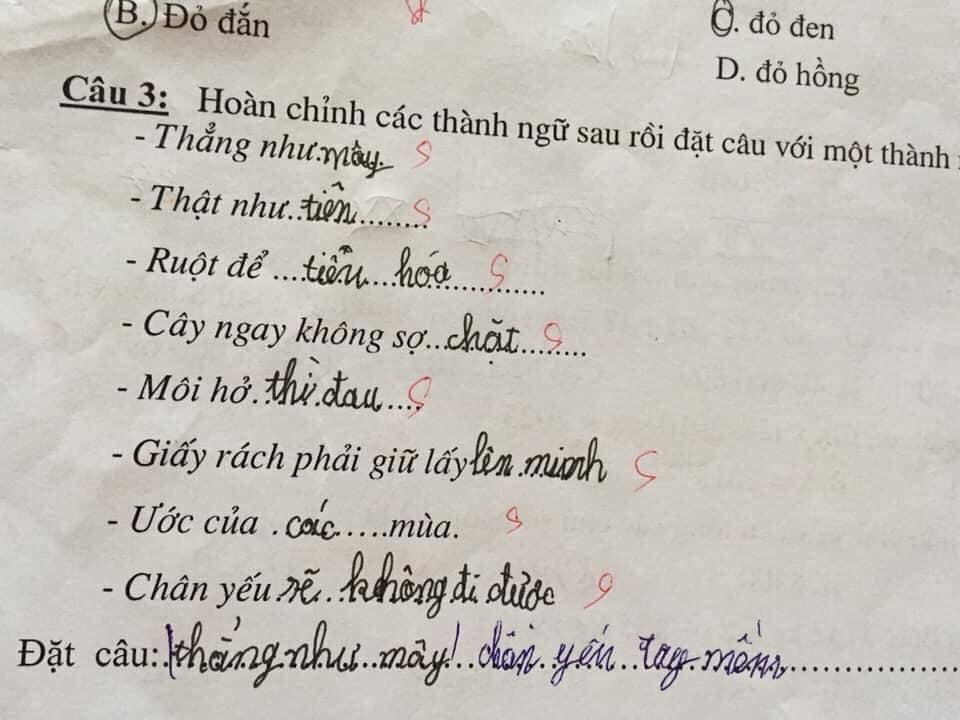 B. Đỏ đắn C. đỏ đen
D. đỏ hồng
Câu 3: Hoàn chỉnh các thành ngữ sau rồi đặt câu với một thành
- Thẳng như mây S
- Thật như..tiên........ S
- Ruột để ...tiêu...hóa............ S
- Cây ngay không sợ..chặt....... S
- Môi hở.thì.đau.... S
- Giấy rách phải giữ lấy lên.minh S
- Ước của .các....mùa. S
- Chân yếu sẽ..không đi được S
Đặt câu: thẳng.như..mây!..chân.yếu..tay.mềm................